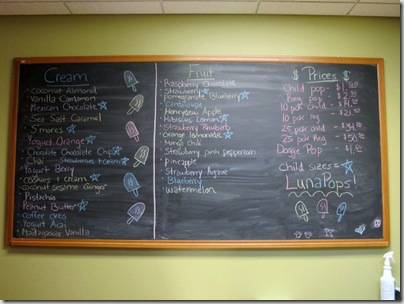 Cream
Coconut Almond
Vanilla Cardamom
Mexican Chocolate
Sea Salt Caramel
S'mores
Yogurt Orange
Chocolate Chocolate Chip
Chai Strawberries + Cream
Yogurt Berry
Cookies + Cream
Coconut Sesame Ginger
Pistachio
Peanut Butter
Coffee Oreo
Yogurt Acai
Madagascar Vanilla
Fruit
Raspberry Chocolate
Strawberry
Pomegranate Blueberry
Cantaloupe
Honeydew Apple
Hibiscus Lemon
Strawberry Rhubarb
Orange Lemonade
Mango Chili
Strawberry pink peppercorn
Pineapple
Strawberry Agave
Blueberry
Watermelon
$ Prices $
Child pop -
Reg pop -
10 pck child -
10 pck reg
25 pck child -
25 pck Reg -
Doggie Pop -
Child sizes =
LunaPops!